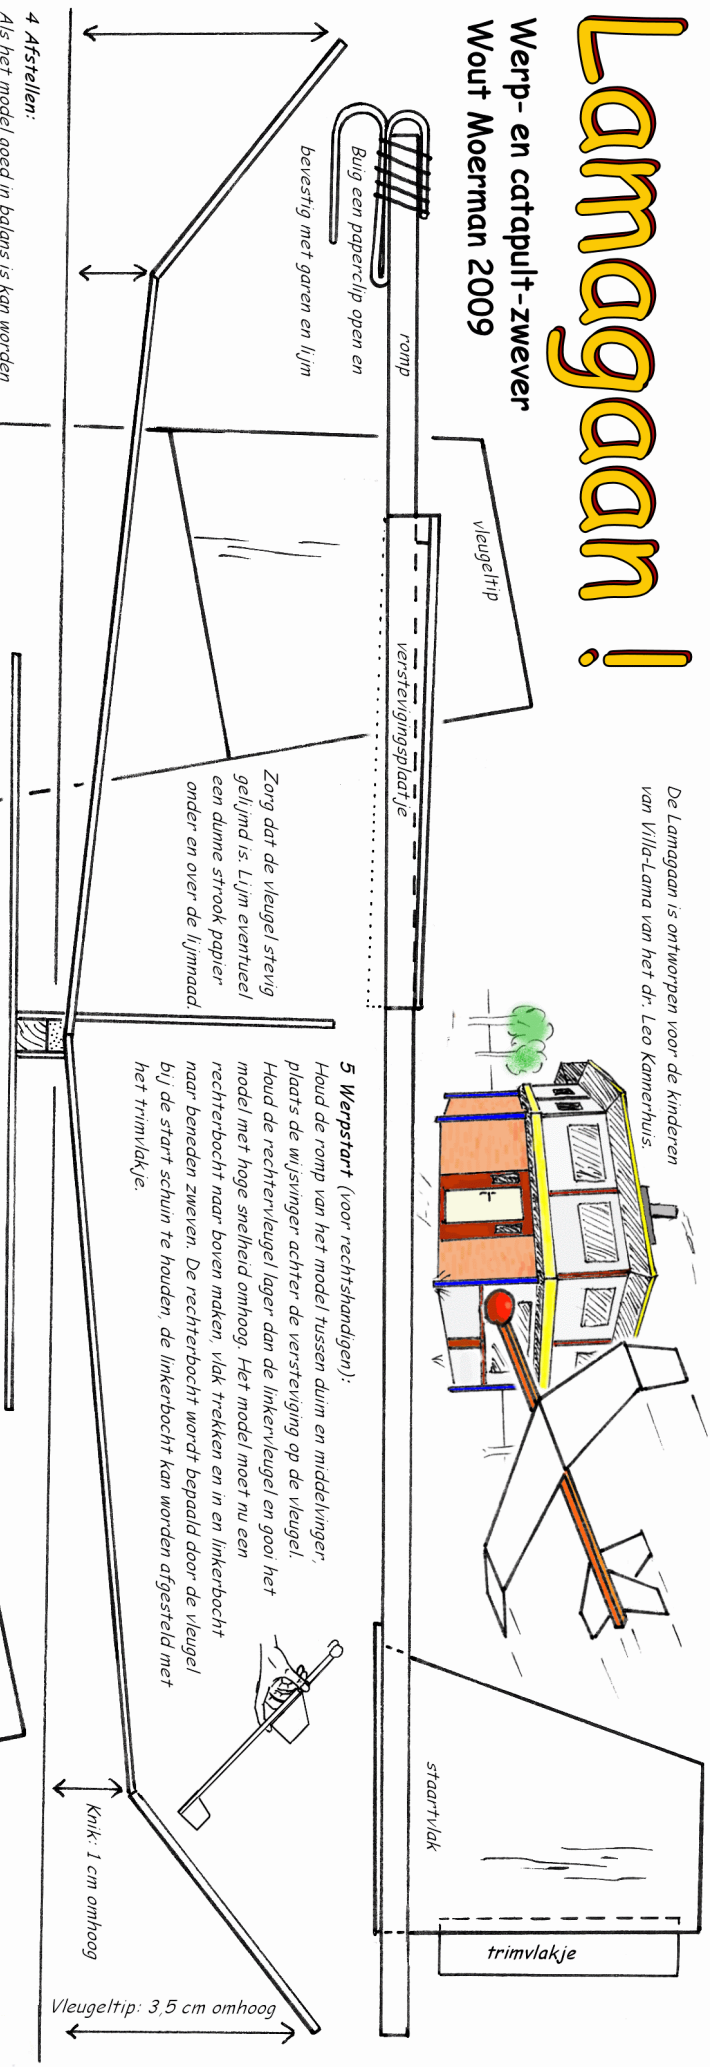 Lamagaan !
Werp- en catapult-zwever
Wout Moerman 2009
De Lamagaan is ontworpen voor de kinderen
van Villa-Lama van het dr. Leo Kannerhuis.
vleugeltip
romp
verstevigingsplaatje
Buig een paperclip open en
bevestig met garen en lijm
Zorg dat de vleugel stevig
gelijmd is. Lijm eventueel
een dunne strook papier
onder en over de lijmnaad.
staartvlak
trimvlakje
5 Werpstart (voor rechtshandigen):
Houd de romp van het model tussen duim en middelvinger,
plaats de wijsvinger achter de versteviging op de vleugel.
Houd de rechtervleugel lager dan de linkervleugel en gooi het
model met hoge snelheid omhoog. Het model moet nu een
rechterbocht naar boven maken, vlak trekken en in en linkerbocht
naar beneden zweven. De rechterbocht wordt bepaald door de vleugel
bij de start schuin te houden, de linkerbocht kan worden afgesteld met
het trimvlakje.
Knik: 1 cm omhoog
Vleugeltip: 3,5 cm omhoog
4 Afstellen:
Als het model goed in balans is kan worden